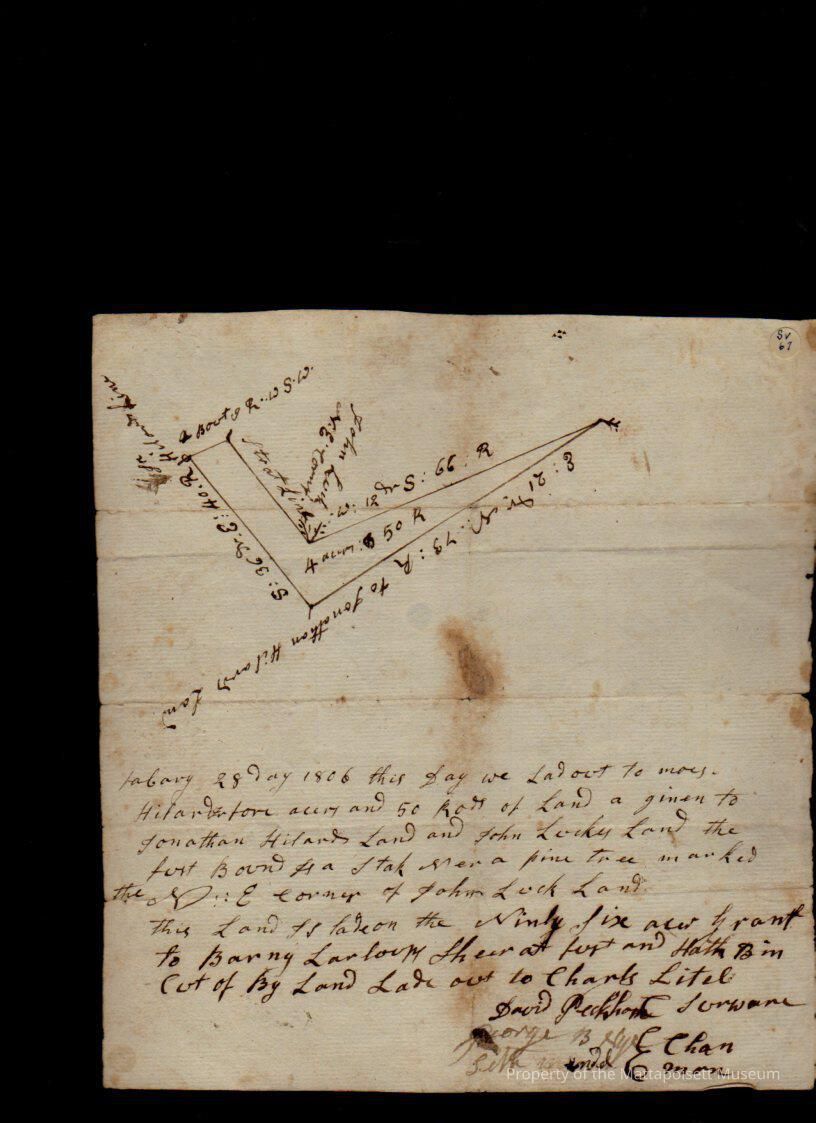 Sv
67
2 Bout 8 R:: W S:W:
Hilards Line
S: 36 Dr E: 40: R
Start
John Lock
N:E: Corner
W: 12 Dr S: 66: R
4 acers: & 50 R
E: 21 Dr N: 73: R
to Jonathan Hilards Land
fabary 28 day 1806 this Day we Ladout to moes.
Hilards fore acers and 50 Rods of Land a ginen to
Jonathan Hilards Land and John Lockes Land the
furst Bound Is a Stak Ner a pine tree marked
the N:: E Corner of John Lock Land
this Land Is ladeon the Ninty Six acer Grant
to Barny Larlocks Sheer at furst and Hath Bin
Cut of By Land Lade out to Charls Litel
David Peckham Surware
George B Nye Chan
Seth men
Property of the Mattapoisett Museum